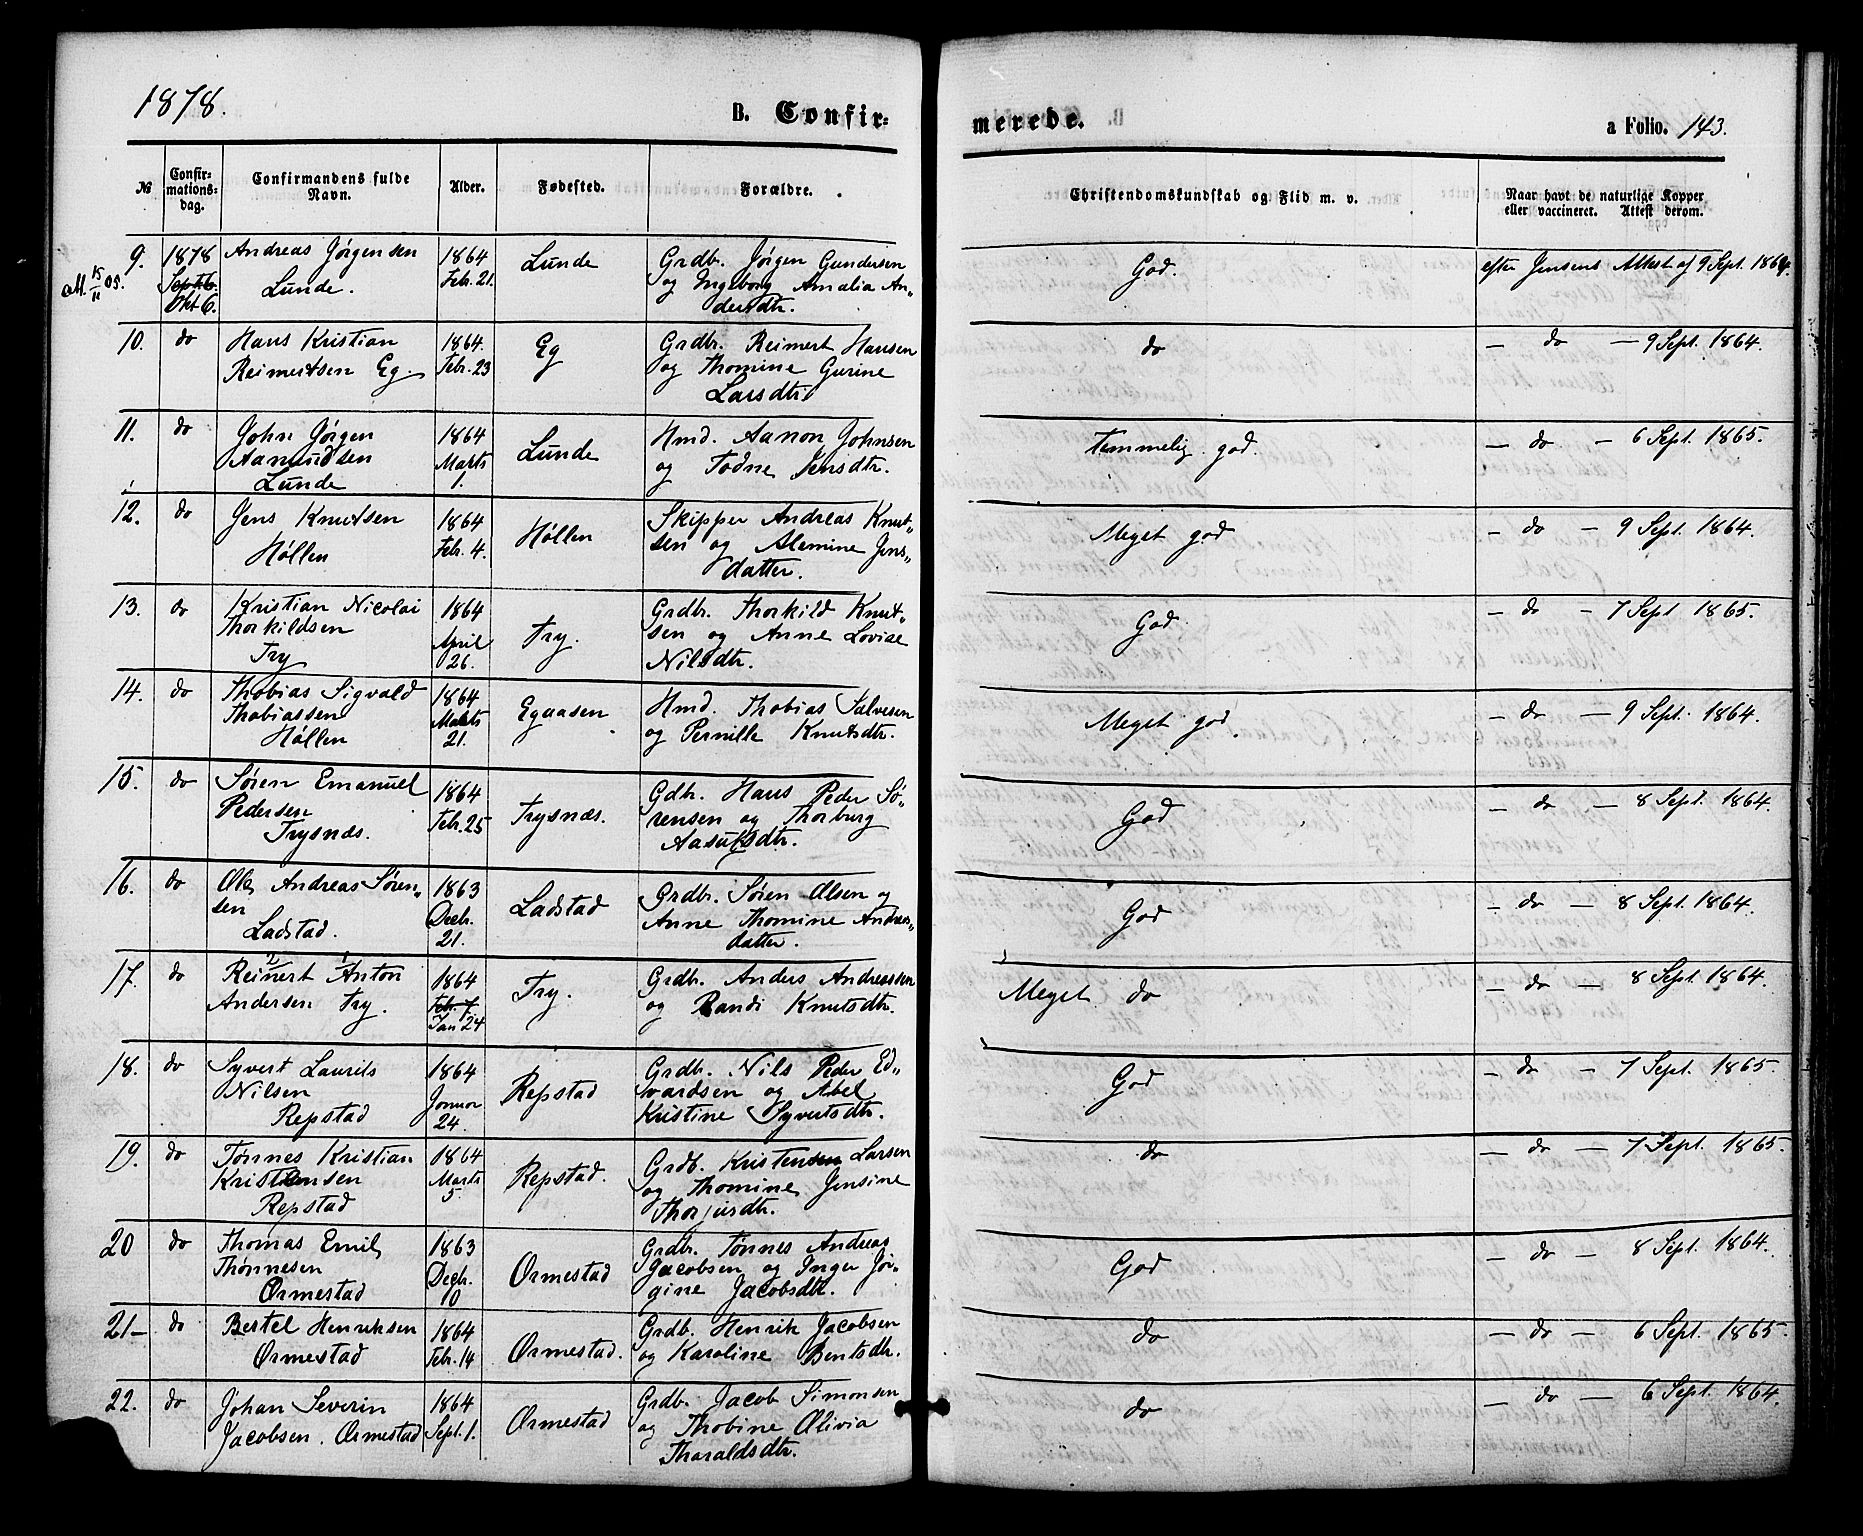 1878.
B. Confirmerede.
a Folio. 143.
№
Confirmationsdag.
Confirmandens fulde Navn.
Alder.
Fødested.
Forældre.
Christendomskundskab og Flid m. v.
Naar havt de naturlige Kopper eller vaccineret. Attest derom.
att. 15/11 05.
9. 1878 Septb. Okt 6. Andreas Jørgensen Lunde. 1864 Febr. 21. Lunde Grdbr. Jørgen Gundersen og Ingeborg Amalia Andersdtr. God. efter Jensens Attest af 9 Sept. 1864.
10. do Hans Kristian Reimertsen Eg. 1864. Febr. 23 Eg Grdbr. Reimert Hansen og Thomine Gurine Larsdtr. do — do — 9 Sept. 1864.
11. do John Jørgen Aanundsen Lunde 1864 Marts 1. Lunde Hmd. Aanon Johnsen og Todne Jensdtr. Temmelig god. — do — 6 Sept. 1865.
12. do Jens Knutsen Høllen 1864 Febr. 4. Høllen Skipper Andreas Knut„ sen og Alemine Jens„ datter. Meget god — do — 9 Sept. 1864.
13. do Kristian Nicolai Thorkildsen Try 1864 April 26. Try. Grdbr. Thorkild Knut„ sen og Anne Lovise Nilsdtr. God — do — 7 Sept. 1865.
14. do Thobias Sigvald Thobiassen Høllen 1864 Marts 21. Egaasen Hmd. Thobias Salvesen og Pernille Knutsdtr. Meget god — do — 9 Sept. 1864.
15. do Søren Emanuel Pedersen Trysnæs. 1864 Febr. 25 Trysnæs. Gdbr. Hans Peder Sø„ rensen og Thorburg Aasulfsdtr. God — do — 8 Sept. 1864.
16. do Ole Andreas Søren„ sen Ladstad. 1863 Decbr. 21. Ladstad Grdbr. Søren Olsen og Anne Thomine Andreas„ datter. God — do — 8 Sept. 1864.
17. do Reinert 2 Anton 1 Andersen Try. 1864 Febr. 7. Jan 24 Try. Grdbr. Anders Andreassen og Randi Knutsdtr. Meget do — do — 8 Sept. 1864.
18. do Syvert Laurits Nilsen Repstad 1864 Januar 24. Repstad Grdbr. Nils Peder Ed„ vardsen og Abel Kristine Syvertsdtr. God — do — 7 Sept. 1865.
19. do Tønnes Kristian Kristensen Repstad 1864 Marts 5 Repstad. Grdb. Kristensen Larsen og Thomine Jensine do — do — 7 Sept. 1865.
20 do Thomas Emil Thønnesen Ormestad 1863 Decbr. 10 Ormestad Grdbr. Tønnes Andreas Jacobsen og Inger Jør„ gine Jacobsdtr. God — do — 8 Sept. 1864.
21— do Bertel Henriksen Ormestad 1864 Febr. 14 Ormestad. Grdb. Henrik Jacobsen og Karoline Bentsdtr. do — do — 6 Sept. 1865.
22. do Johan Severin Jacobsen. Ormestad 1864 Sept. 1. Ormestad Grdb. Jacob Simonsen og Thobine Olivia Tharaldsdtr. do — do — 6 Sept. 1864.